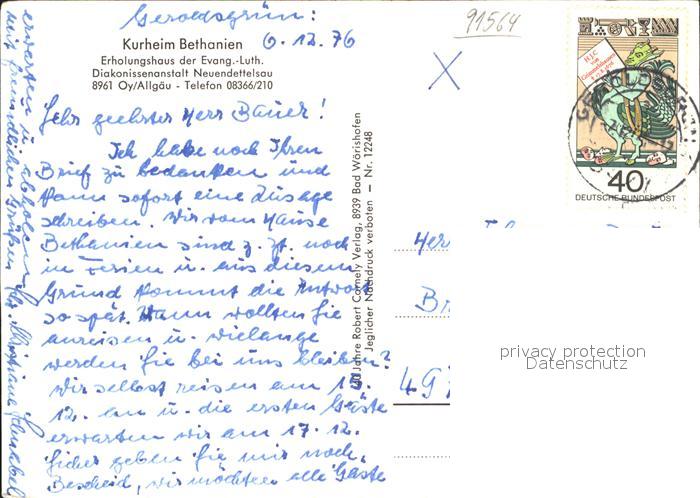 Geroldsgrün:
6.12.76
91564
Kurheim Bethanien
Erholungshaus der Evang.-Luth.
Diakonissenanstalt Neuendettelsau
8961 Oy/Allgäu - Telefon 08366/210
Sehr geehrter Herr Bauer!
Ich habe noch Ihren
Brief zu bedanken und
kann sofort eine Zusage
schreiben. Wir vom Hause
Bethanien sind z. Zt. noch
in Ferien u. aus diesem
Grund kommt die Antwort
so spät. Wann wollten Sie
anreisen u. wielange
werden Sie bei uns bleiben?
Wir selbst reisen am
12. an u. die ersten Gäste
erwarten wir am 17.12.
Sicher geben Sie mir noch
Bescheid, wir möchten alle Gäste
erwarten u. abholen
mit freundlichen Grüßen Ihre Christiane
Jahre Robert Cornely Verlag, 8939 Bad Wörishofen
Jeglicher Nachdruck verboten — Nr. 12248
H.J.C.
von
Grimmelshausen
40
DEUTSCHE BUNDESPOST
Her
B
49
privacy protection
Datenschutz